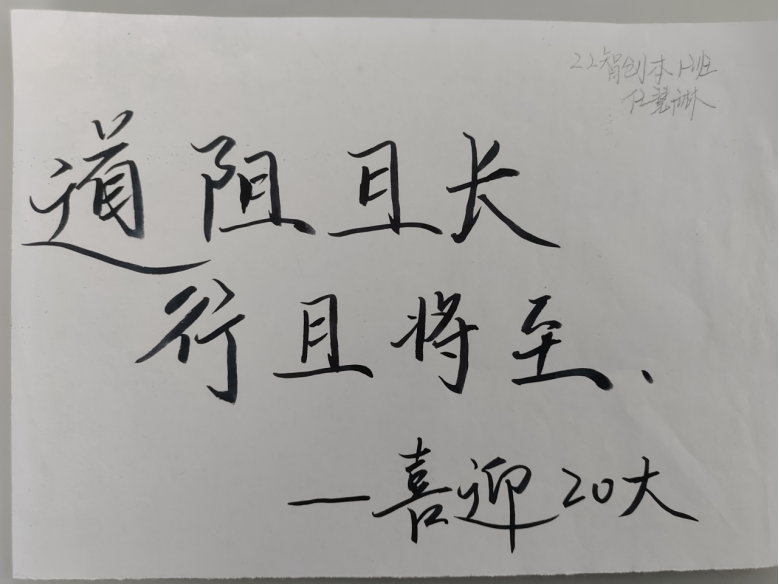 22智创本1班
任慧琳
道阻且长
行且将至.
—喜迎20大